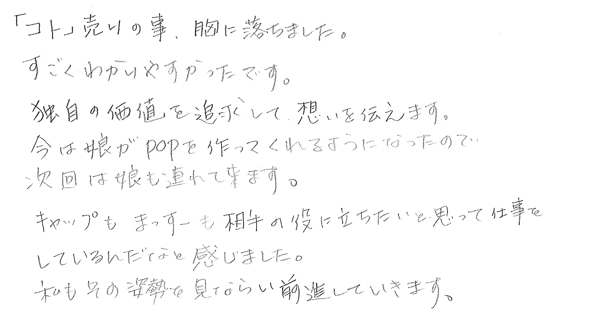 「コト」売りの事、胸に落ちました。
すごくわかりやすかったです。
独自の価値を追求して、想いを伝えます。
今は娘がPOPを作ってくれるようになったので…
次回は娘も連れて来ます。
キャップも まっすーも 相手の役に立ちたいと思って仕事を
しているんだなと感じました。
私もその姿勢を見ならい前進していきます。